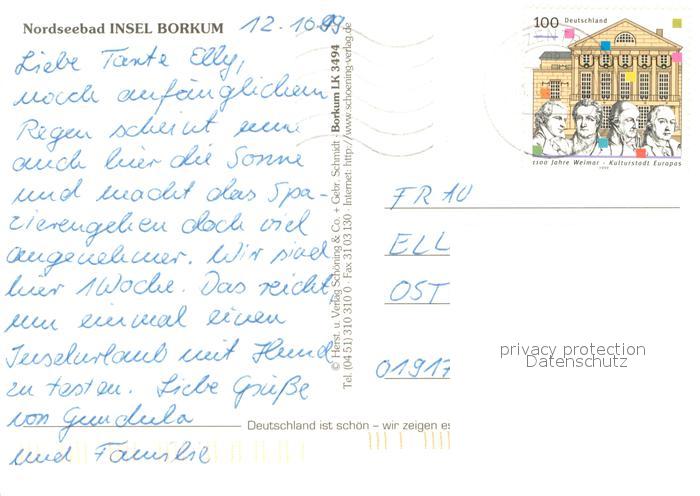 Nordseebad INSEL BORKUM
12.10.99
Liebe Tante Elly,
nach anfänglichem
Regen scheint nun
auch hier die Sonne
und macht das Spa-
zierengehen doch viel
angenehmer. Wir sind
hier 1 Woche. Das reicht,
um einmal einen
Inselurlaub mit Hund
zu testen. Liebe Grüße
von Gundula
und Familie
© Herst. u. Verlag Schöning & Co. + Gebr. Schmidt Borkum LK 3494
Tel. (04 51) 310 310 0 · Fax 31 03 130 · Internet: http://www.schoening-verlag.de
100 Deutschland
1100 Jahre Weimar - Kulturstadt Europas
1999
FRAU
ELL
OST
01917
privacy protection
Datenschutz
Deutschland ist schön – wir zeigen es